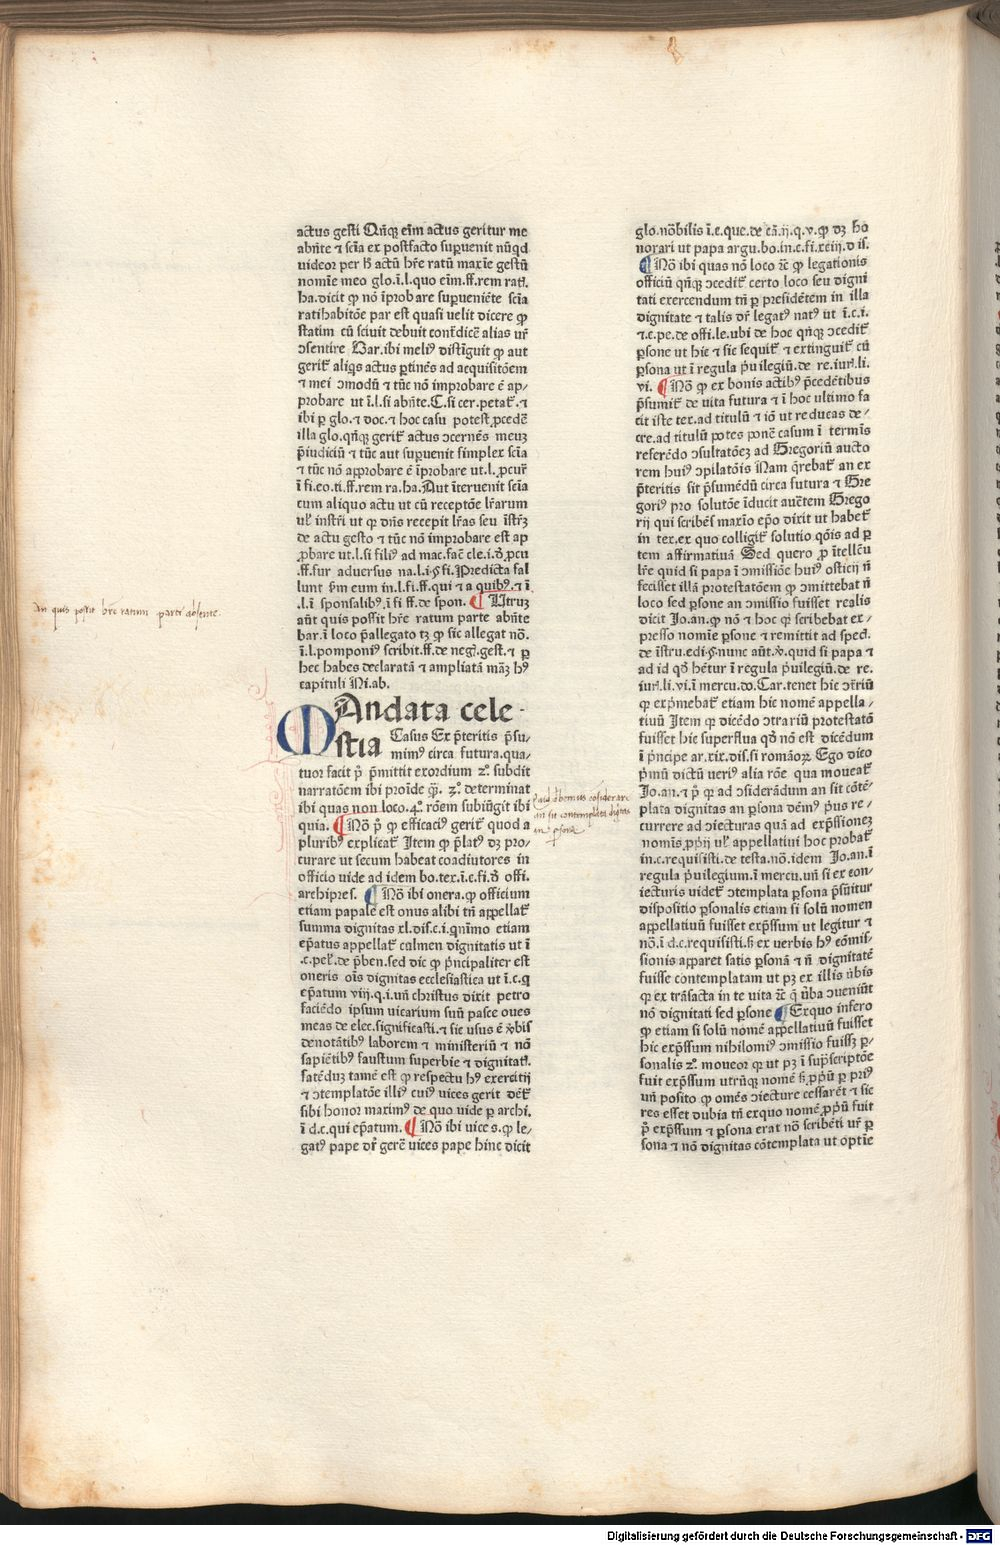 actus gesti Qñqꝫ eĩm actus geritur me
abñte ⁊ sciã ex postfacto supuenit nũqd
videor per ħ actũ hr̃e ratũ maxĩe gestũ
nomĩe meo glo.ĩ.l.quo eĩm.ff.rem rat.
ha.dicit ꝙ nõ ĩprobare supueniẽte sciã
ratihabitõe par est quasi uelit dicere ꝙ
statim cũ sciuit debuit contrdicẽ alias ur̃
ɔsentire Bar.ibi meliꝰ distĩguit ꝙ aut
gerit̃ aliqs actus ptinẽs ad acquisitõem
⁊ mei ɔmodũ ⁊ tũc nõ improbare ẽ ap/
probare ut ĩ.l.si abñte.C.si cer.petat̃.⁊
ibi p glo.⁊ doc.⁊ hoc casu potest pcedẽ
illa glo.qñqꝫ gerit̃ actus ɔcernẽs meuꝫ
p̃iudiciũ ⁊ tũc aut supuenit simplex sciã
⁊ tũc nõ approbare ẽ ĩprobare ut.l.pcur̃
ĩ fi.eo.ti.ff.rem ra.ha.Aut ĩteruenit sciã
cum aliquo actu ut cũ receptõe lr̃arum
ul̃ instr̃i ut ꝙ dñs recepit lr̃as seu ĩstr̃ꝫ
de actu gesto ⁊ tũc nõ improbare est ap
probare ut.l.si filiꝰ ad mac.facẽ cle.i.ꝺ̃ pcu
.ff.fur aduersus na.l.i.§ fi.Predicta fal
lunt p̃m eum in.l.fi.ff.qui ⁊ a quibꝰ.⁊ ĩ
.l.ĩ sponsalibꝰ.ĩ fi ff.de spon. ¶ Utruꝫ
aũt quis possit hr̃e ratum parte abñte
bar.ĩ loco p̃allegato tꝫ ꝙ sic allegat nõ.
ĩ.l.pomponiꝰ scribit.ff.de neg.gest.⁊ p
hec habes declaratã ⁊ ampliatã mãꝫ hꝰ
capituli Ni.ab.
MAndata cele-
stia Casus Ex p̃teritis p̃su/
mimꝰ circa futura.qua/
tuor facit p̃ p̃mittit exordium 2°. subdit
narratõem ibi proĩde ꝙ. 3°. determinat
ibi quas non loco.4°. rõem subiũgit ibi
quia. ¶ Nõ p̃ ꝙ efficaciꝰ gerit̃ quod a
pluribꝰ explicat̃ Item ꝙ p̃latꝰ dꝫ pro/
curare ut secum habeat coadiutores in
officio uide ad idem bo.tex.ĩ.c.fi.ꝺ̃ offi.
archipres. ¶ Nõ ibi onera.ꝙ officium
etiam papale est onus alibi tñ appellat̃
summa dignitas xl.dis.c.i.quĩmo etiam
ep̃atus appellat̃ culmen dignitatis ut ĩ
.c.pe.de p̃ben.sed dic ꝙ p̃ncipaliter est
oneris oĩs dignitas ecclesiastica ut ĩ.c.q
ep̃atum viij.q.i.uñ christus dixit petro
faciẽdo ipsum uicarium suũ pasce oues
meas de elec.significasti.⁊ sic usus ẽ v̾bis
denotãtibꝰ laborem ⁊ ministeriũ ⁊ nõ
sapiẽtibꝰ faustum superbie ⁊ dignitat̃.
fatẽduꝫ tamẽ est ꝙ respectu hꝰ exercitij
⁊ ɔtemplatõe illiꝰ cuiꝰ uices gerit det̃
sibi honor maximꝰ de quo uide p archi.
ĩ d.c.qui ep̃atum. ¶ Nõ ibi uice s.ꝙ le/
gatꝰ pape dr̃ gerẽ uices pape hinc dicit
glo.nõbilis ĩ.c.que.de eã.ij.q.v.ꝙ dꝫ ho
norari ut papa argu.bo.in.c.fi.xciij.dis.
¶ Nõ ibi quas nõ loco ⁊c̃ ꝙ legationis
officiũ qñqꝫ ɔcedit̃ certo loco seu digni
tati exercendum tñ p presidẽtem in illa
dignitate ⁊ talis dr̃ legatꝰ natꝰ ut ĩ.c.i.
⁊.c.pe.de offi.le.ubi de hoc qñqꝫ ɔcedit̃
psone ut hic ⁊ sic sequit̃ ⁊ extinguit̃ cũ
psona ut ĩ regula p̃uilegiũ.de re.iur.li.
vi. ¶ Nõ ꝙ ex bonis actibꝰ p̃cedẽtibus
p̃sumit̃ de vita futura ⁊ ĩ hoc ultimo fa
cit iste tex.ad titulũ ⁊ iõ ut reducas de/
cre.ad titulũ potes ponẽ casum ĩ termĩs
referẽdo ɔsultatõeꝫ ad Gregoriũ aucto
rem huiꝰ ɔpilatõis Nam q̃rebat̃ an ex
p̃teritis sit p̃sumẽdũ circa futura ⁊ Gre
goriꝰ pro solutõe ĩducit autẽem Grego
rij qui scribẽs maxĩo ep̃o dixit ut habet̃
in tex.ex quo colligit̃ solutio qõis ad p
tem affirmatiuã Sed quero p ĩtellẽu
lr̃e quid si papa ĩ ɔmissiõe huiꝰ officij ñ
fecisset illã protestatõem ꝙ ɔmittebat ñ
loco sed psone an ɔmissio fuisset realis
dicit Jo.an.ꝙ nõ ⁊ hoc qꝛ scribebat ex/
presso nomĩe psone ⁊ remittit ad spec̃.
de ĩstru.edi.§.nunc aũt.v̾.quid si papa ⁊
ad id qꝺ hẽtur ĩ regula p̃uilegiũ.de re.
iur.li.vi.ĩ mercu.do.Car.tenet hic ɔtr̃iũ
qꝛ exp̃mebat̃ etiam hic nomẽ appella/
tiuũ Item qꝛ dicẽdo ɔtrariũ protestatõ
fuisset hic superflua qꝺ nõ est dicẽdum
ĩ p̃ncipe ar.xix.dis.si romãoꝝ Ego dico
p̃mũ dictũ ueriꝰ alia rõe qua moueat̃
Jo.an.⁊ p̃ ꝙ ad ɔsiderãdum an sit cõtẽ/
plata dignitas an psona dẽmꝰ p̃us re/
currere ad ɔiecturas quã ad exp̃ssionez
nomĩs ppij ul̃ appellatiui hoc probat̃
in.c.requisisti.de testa.nõ.idem Jo.an.ĩ
regula p̃uilegium.ĩ mercu.uñ si ex con/
iecturis uidet̃ ɔtemplata psona p̃sũitur
dispositio psonalis etiam si solũ nomen
appellatiuũ fuisset exp̃ssum ut legitur ⁊
nõ.ĩ d.c.requisisti.ß ex uerbis hꝰ cõmis/
sionis apparet satis psonã ⁊ ñ dignitatẽ
fuisse contemplatam ut pꝫ ex illis v̾bis
ꝙ ex trãsacta in te uita ⁊c̃ q̃ v̾ba ɔueniũt
nõ dignitati sed psone ¶ Ex quo infero
ꝙ etiam si solũ nomẽ appellatiuũ fuisset
hic exp̃ssum nihilomiꝰ ɔmissio fuissꝫ p/
sonalis 2°. moueor qꝛ ut pꝫ ĩ sup̃scriptõe
fuit exp̃ssum utrũqꝫ nomẽ ß ppũ p priꝰ
uñ posito ꝙ omẽs ɔiecture cessarẽt ⁊ sic
res esset dubia tñ exquo nomẽ ppũ fuit
p̃ exp̃ssum ⁊ psona erat nõ scribẽti ur̃ p
sona ⁊ nõ dignitas cõtemplata ut optĩe
An quis possit hr̃e ratum parte absente.
Quid debemus cõsiderare
an sit contemplata dignitas
an psona
Digitalisierung gefördert durch die Deutsche Forschungsgemeinschaft - DFG